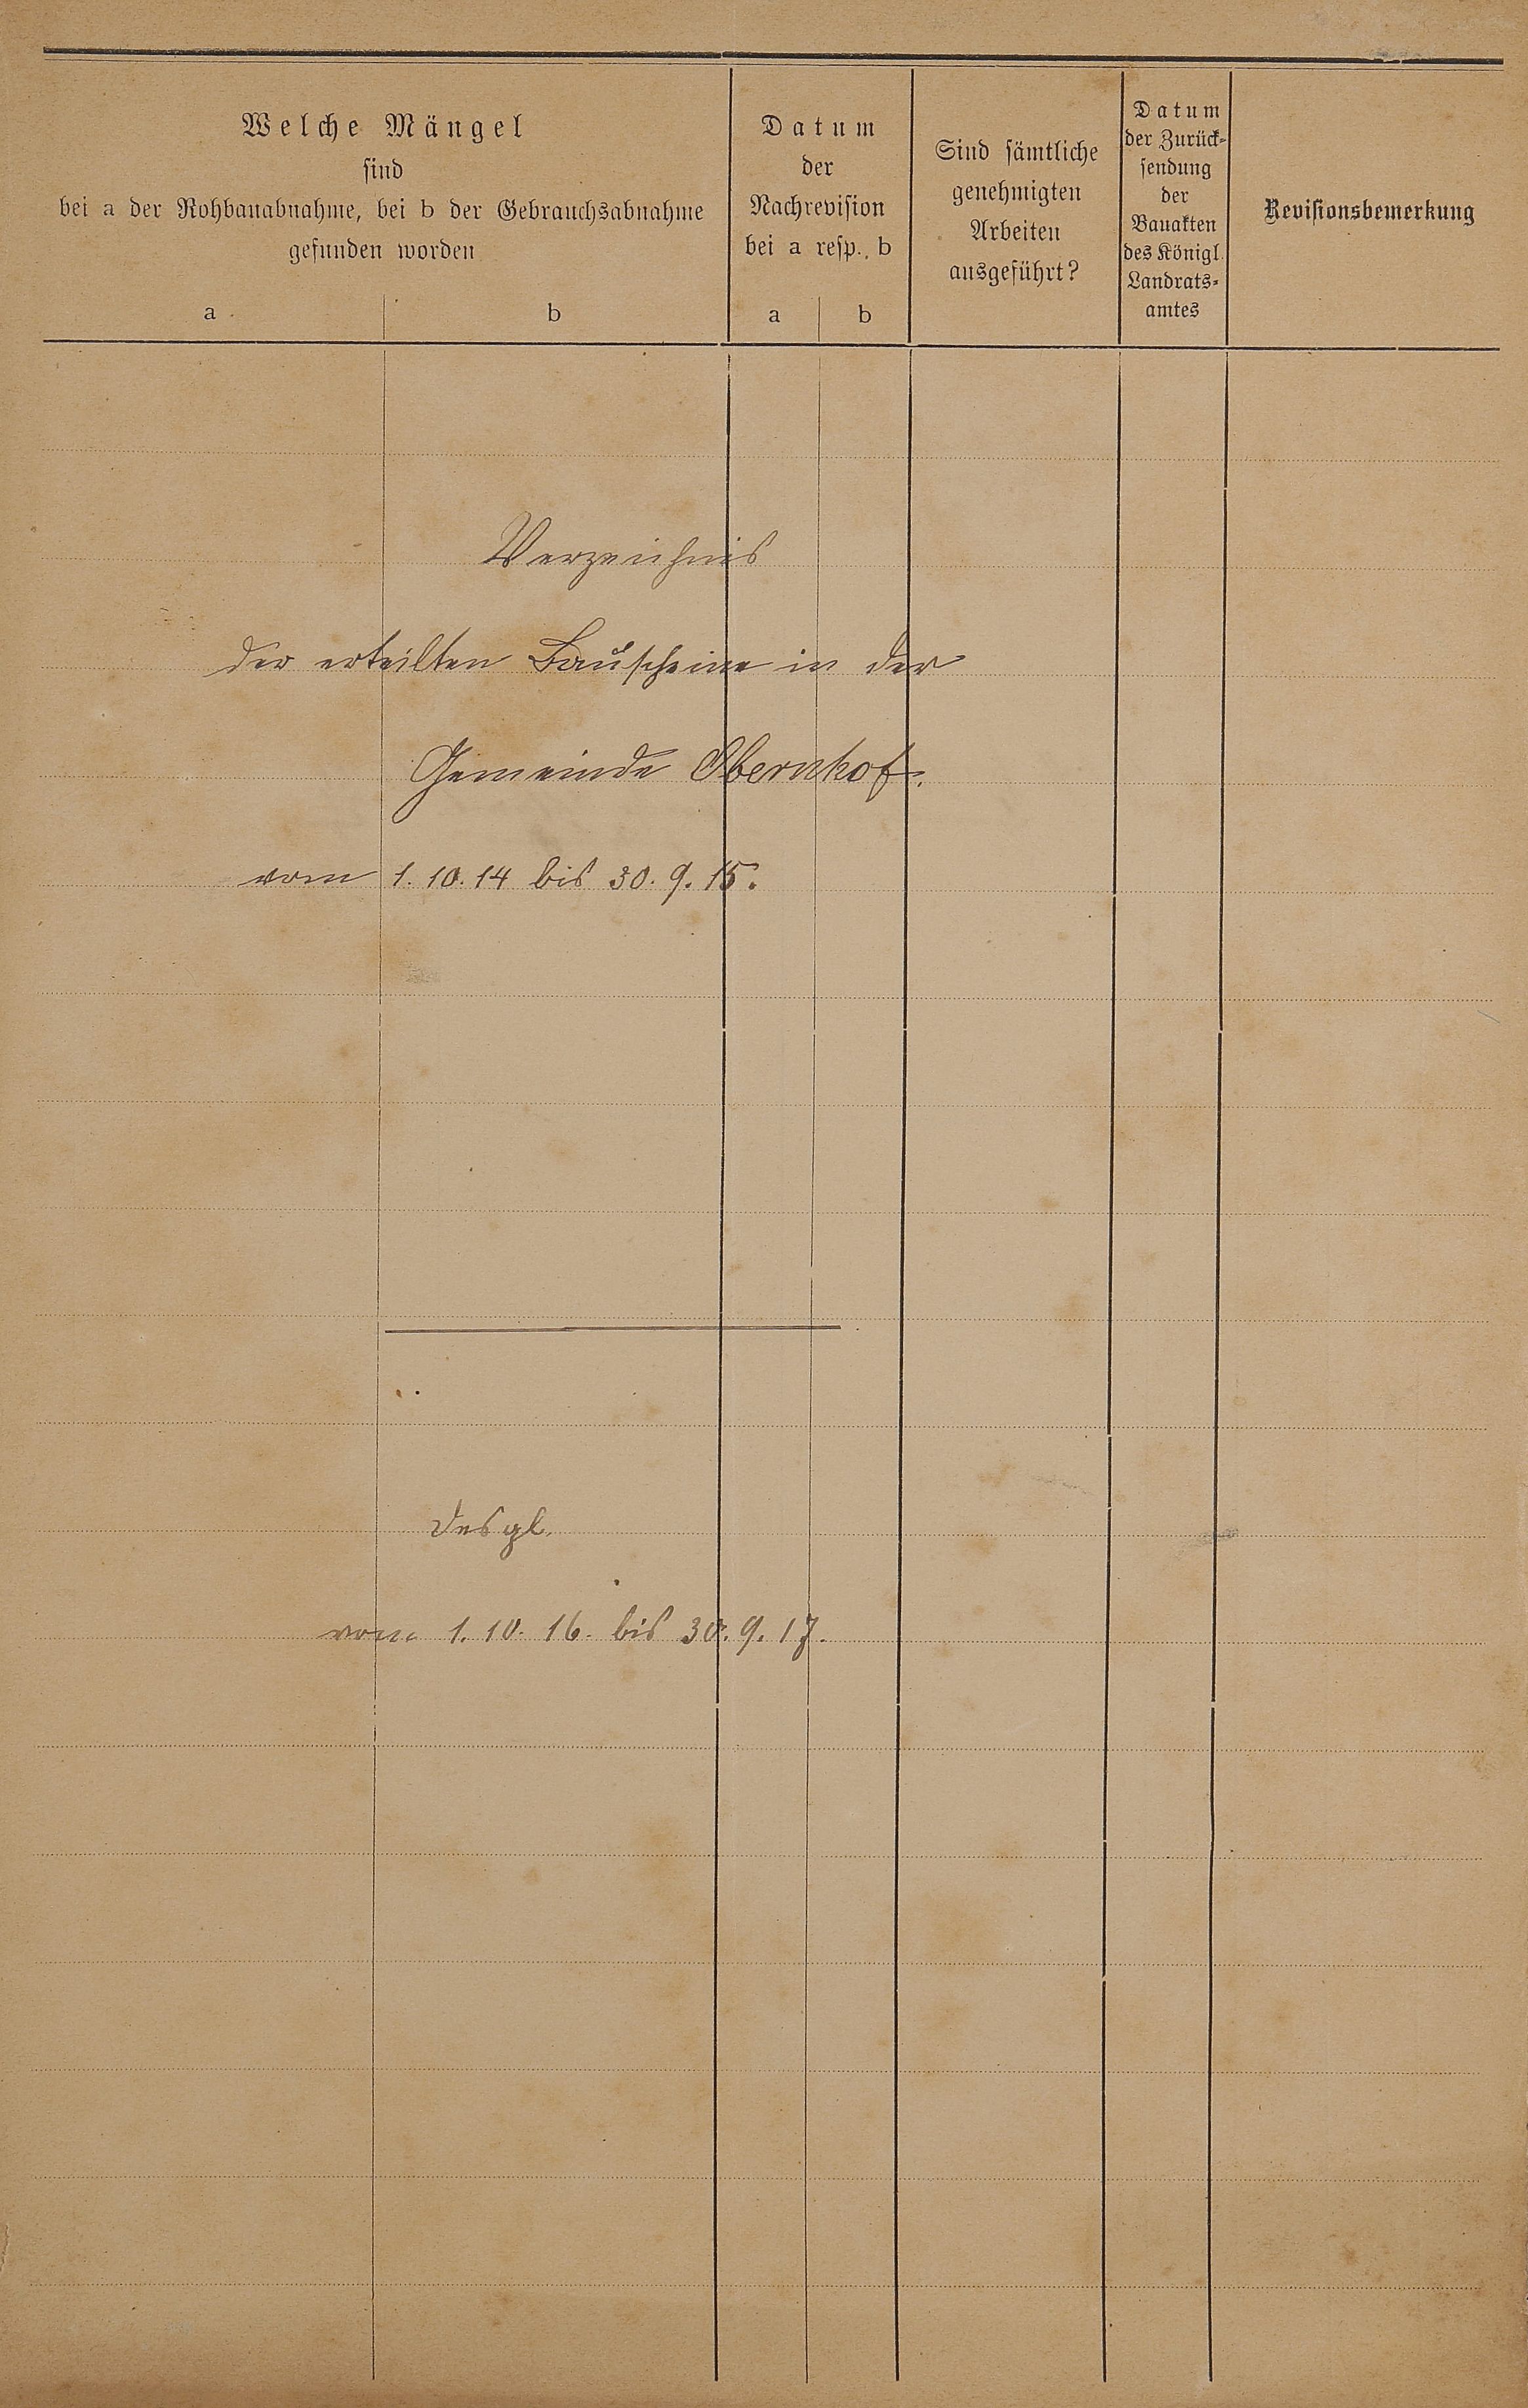 Welche Mängel
sind
bei a der Rohbauabnahme, bei b der Gebrauchsabnahme
gefunden worden
a
b
Datum
der
Nachrevision
bei a resp. b
a
b
Sind sämtliche
genehmigten
Arbeiten
ausgeführt?
Datum
der Zurück-
sendung
der
Bauakten
des Königl.
Landrats-
amtes
Revisionsbemerkung
Verzeichnis
der erteilten Bauscheine in der
Gemeinde Obernhof.
vom 1.10.14 bis 30.9.15.
desgl.
vom 1.10.16. bis 30.9.17.